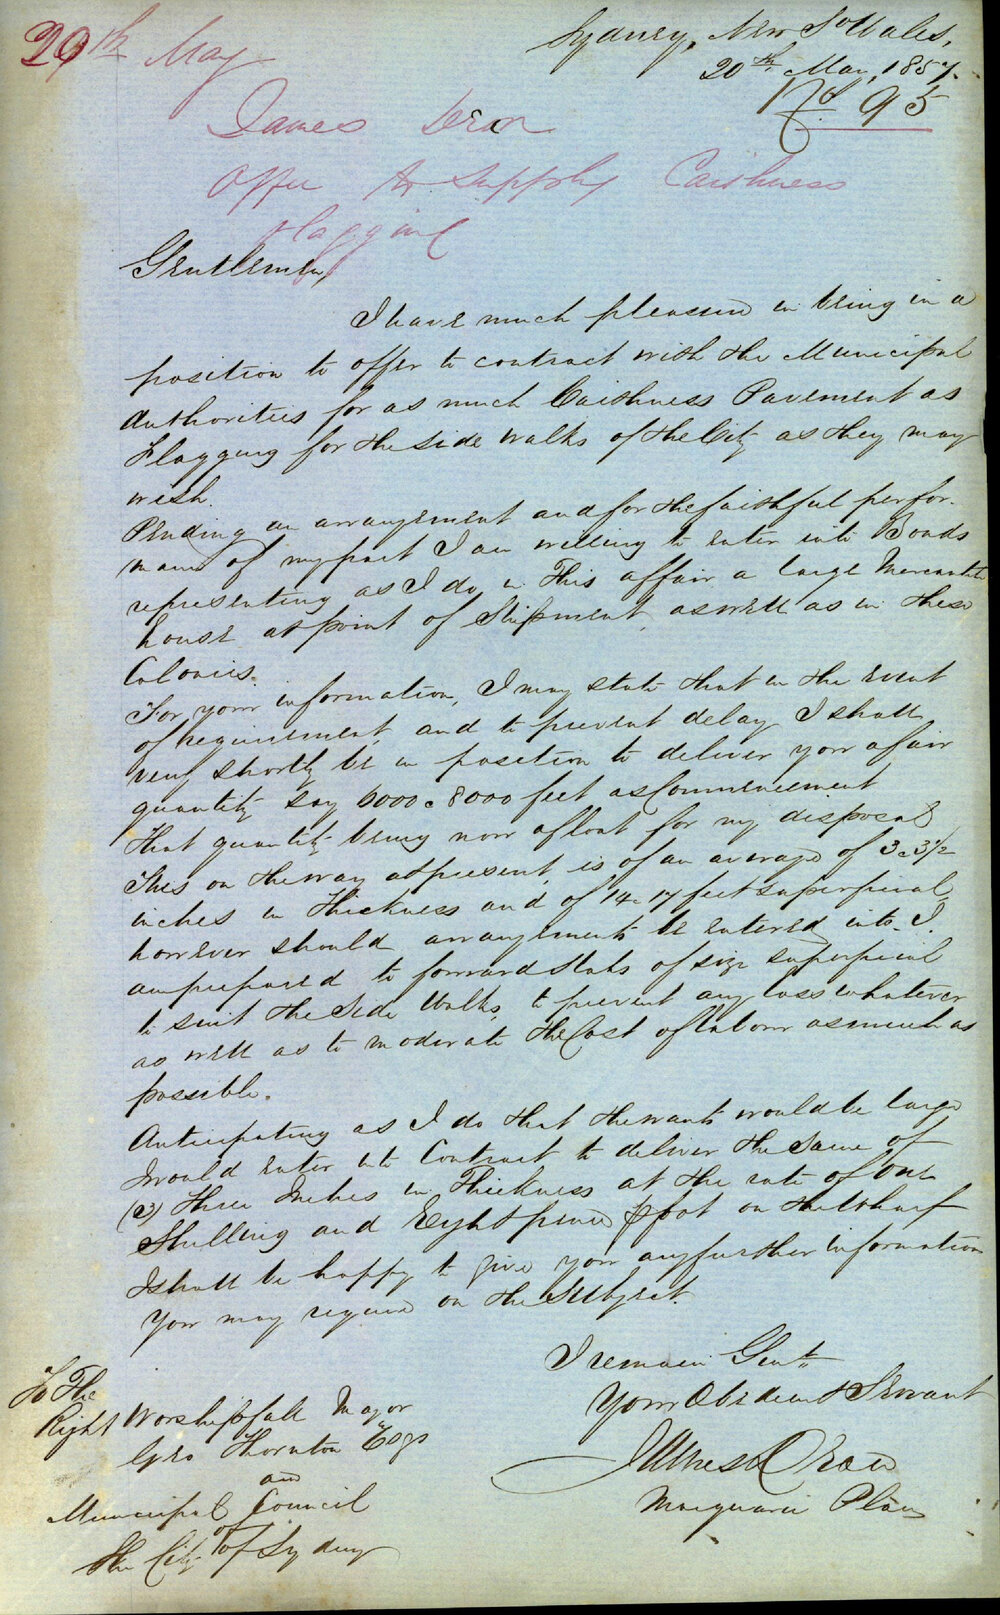 29th May
Sydney, New So Wales,
20th May, 1857.
No 95
James
Offer to supply Caithness
Flagging
Gentlemen,
I have much pleasure in being in a
position to offer to contract with the Municipal
Authorities for as much Caithness Pavement as
Flagging for the side walks of the City as they may
wish.
Pending an arrangement and for the faithful perfor-
mance of my part I am willing to enter into Bonds
representing as I do in This affair a large Mercantile
house at point of Shipment, as well as in these
Colonies.
For your information, I may state that in the event
of requirement, and to prevent delay I shall
very shortly be in position to deliver you a fair
quantity say 6000 a 8000 feet as Commencement
that quantity being now afloat for my disposal
This on the way at present, is of an average of 3 a 3½
inches in Thickness and of 14 a 17 feet superficial,
however should arrangements be entered into. I.
am prepared to forward slabs of size superficial
to suit the Side Walks, to prevent any loss whatever
as well as to moderate the Cost of labour as much as
possible.
Anticipating as I do that the wants would be large
I would enter into Contract to deliver the same of
(3) three Inches in Thickness at the rate of One
Shilling and Eight pence P foot on the Wharf
I shall be happy to give you any further information
You may require on the Subject.
I remain Gentn
Your Obedient Servant
James
Macquarie Place
To The
Right Worshipfull Mayor
Geo Thornton Esqr
and
Municipal Council
of
The City of Sydney